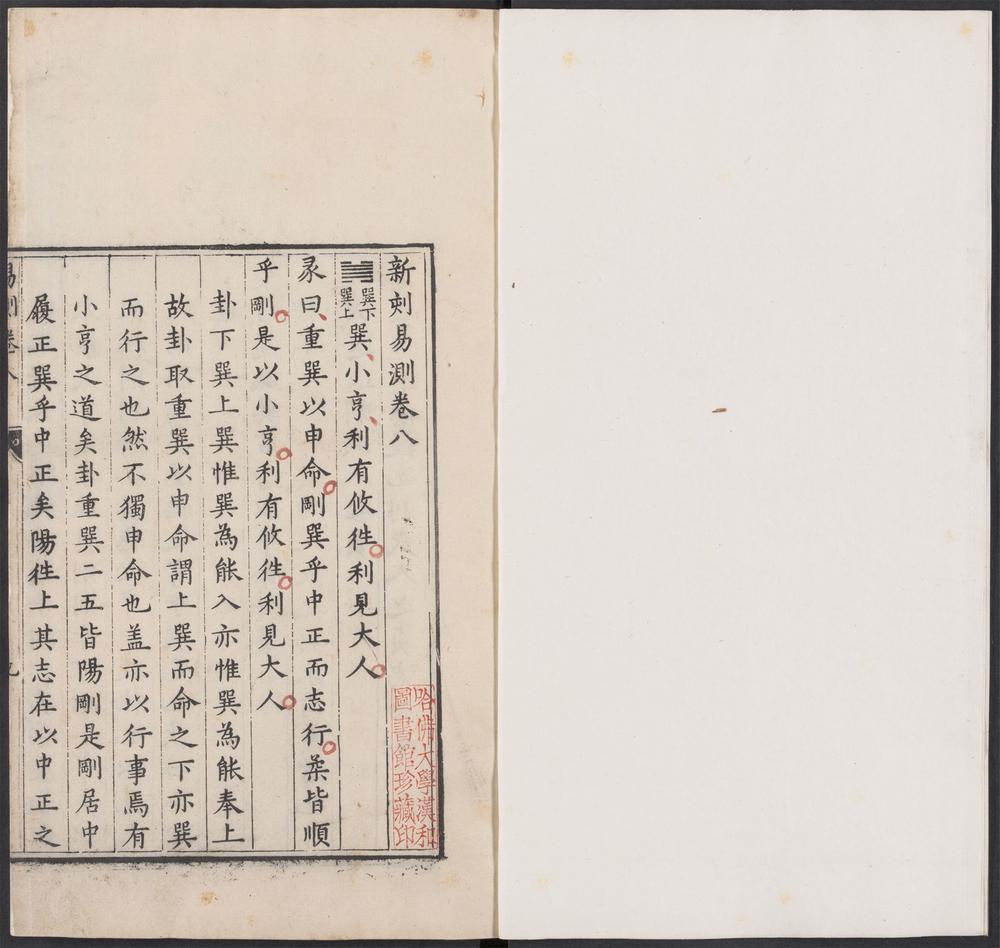 新刻易測卷八
䷸巽下巽上巽小亨利有攸徃利見大人
彖曰重巽以申命剛巽乎中正而志行柔皆順
乎剛是以小亨利有攸徃利見大人
卦下巽上巽惟巽為能入亦惟巽為能奉上
故卦取重巽以申命謂上巽而命之下亦巽
而行之也然不獨申命也盖亦以行事焉有
小亨之道矣卦重巽二五皆陽剛是剛居中
履正巽乎中正矣陽徃上其志在以中正之
易測卷八
哈佛大學漢和
圖書館珍藏印